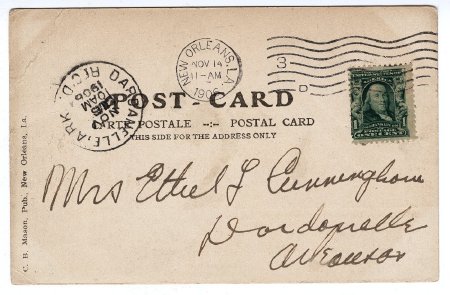 NEW ORLEANS, LA.
NOV 14
11-AM
1906
DARDANELLE, ARK.
REC'D.
NOV
10AM
1906
3
D
POST-CARD
CARTE POSTALE -:- POSTAL CARD
THIS SIDE FOR THE ADDRESS ONLY
C. B. Mason, Pub. New Orleans, La.
Mrs Ethel L Cunningham
Dardanelle
Arkansas